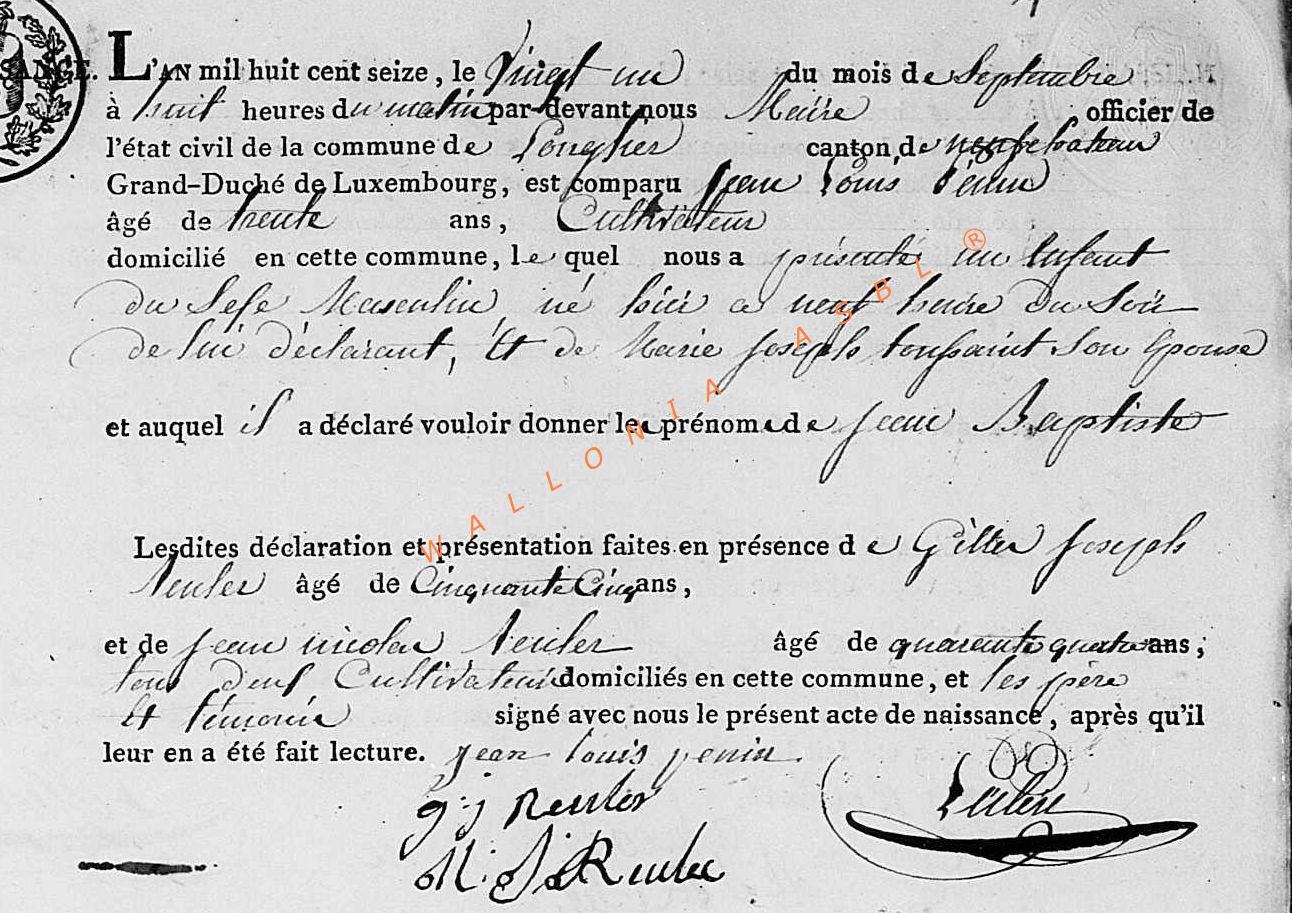 SANCE.
L'AN mil huit cent seize, le Vingt un du mois de Septembre
à huit heures du matin par-devant nous Maire officier de
l'état civil de la commune de Longlier canton de neufchateau
Grand-Duché de Luxembourg, est comparu jean Louis Penin
âgé de trente ans, Cultivateur
domicilié en cette commune, le quel nous a présenté un Enfant
du Sexe Masculin, né hier a neuf heure du Soir
de lui déclarant, Et de Marie joseph toussaint Son Epouse
et auquel il a déclaré vouloir donner le prénom de jean Baptiste
Lesdites déclaration et présentation faites en présence de Gilles joseph
Reuler âgé de Cinquante Cinq ans,
et de jean nicolas Reuler âgé de quarante quatre ans;
tous deux Cultivateurs domiciliés en cette commune, et les père
Et témoin signé avec nous le présent acte de naissance, après qu'il
leur en a été fait lecture. jean louis penin
g: j Reuler
Reuler
WALLONIA ASBL ®